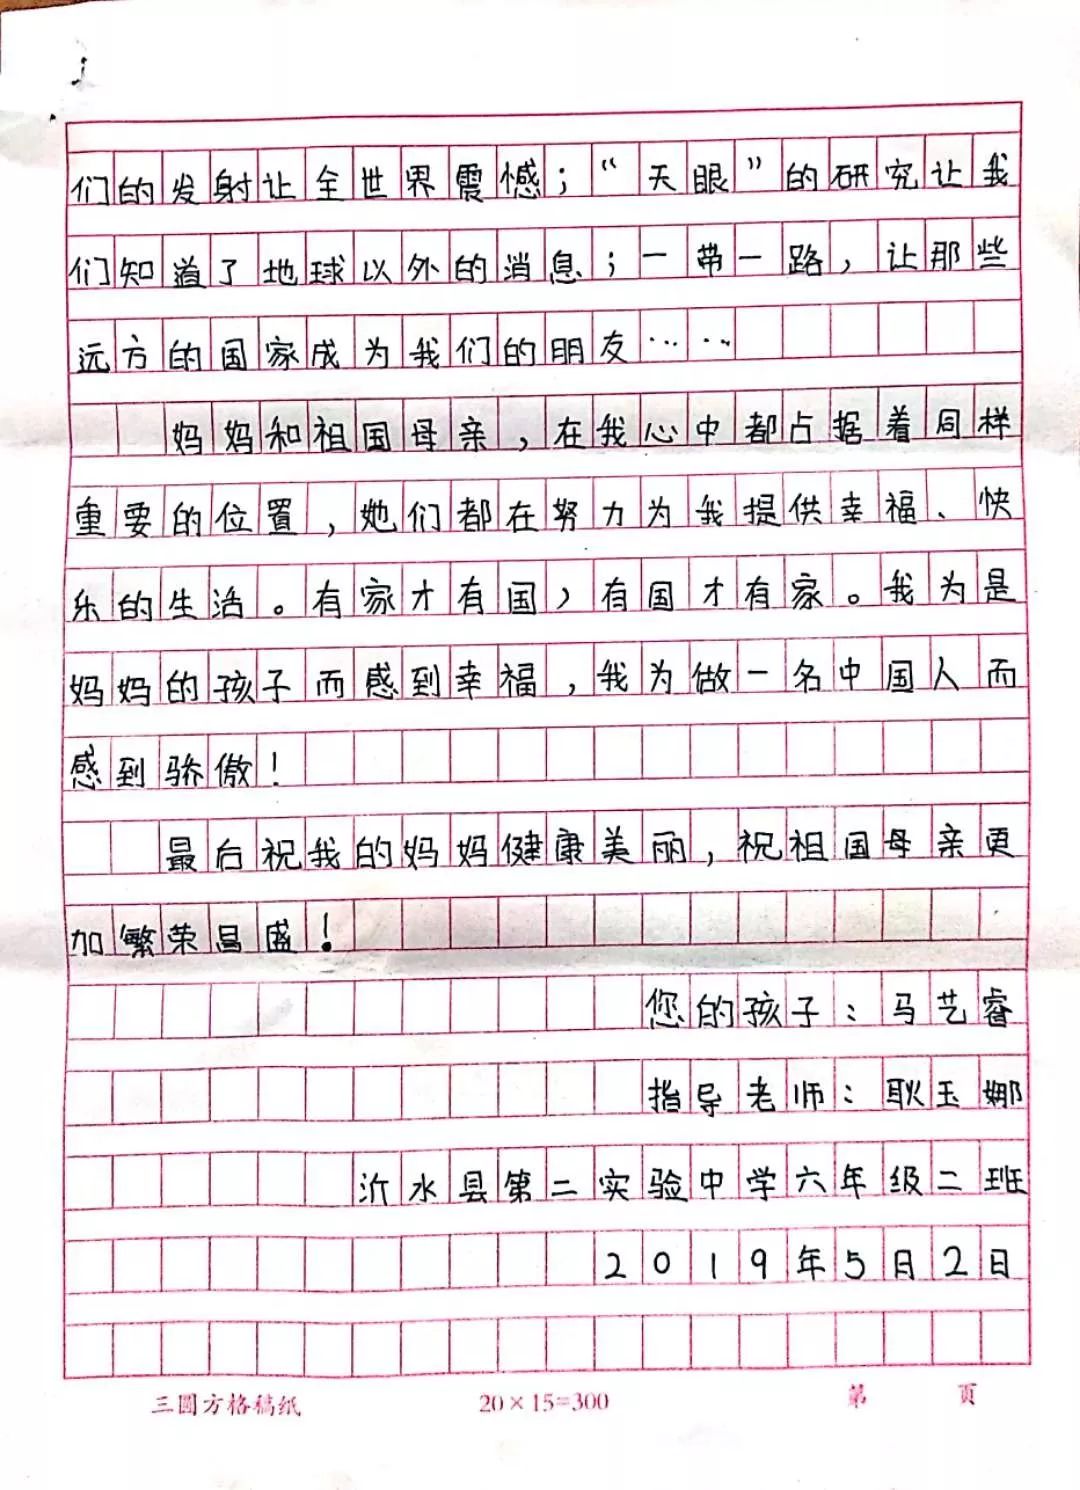 们的发射让全世界震憾；“天眼”的研究让我
们知道了地球以外的消息；一带一路，让那些
远方的国家成为我们的朋友……
妈妈和祖国母亲，在我心中都占据着同样
重要的位置，她们都在努力为我提供幸福、快
乐的生活。有家才有国，有国才有家。我为是
妈妈的孩子而感到幸福，我为做一名中国人而
感到骄傲！
最后祝我的妈妈健康美丽，祝祖国母亲更
加繁荣昌盛！
您的孩子：马艺睿
指导老师：耿玉娜
沂水县第二实验中学六年级二班
2019年5月2日
三圆方格稿纸 20×15=300 第 页